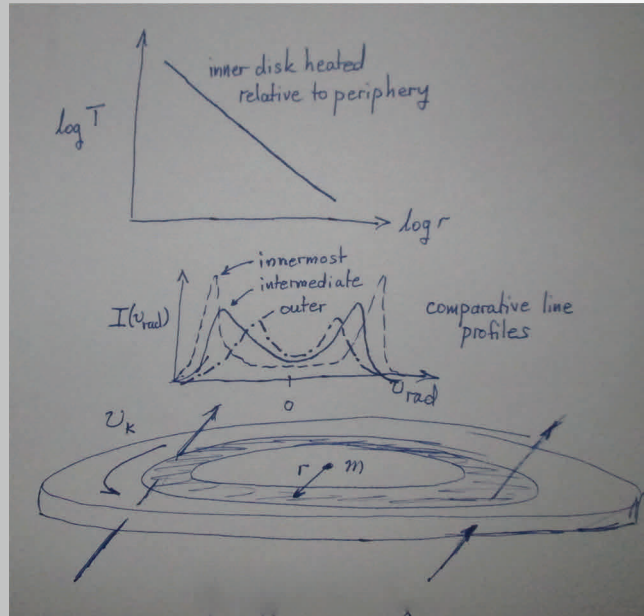 inner disk heated
relative to periphery
log T
log r
innermost
intermediate
outer
I(v_rad)
comparative line
profiles
0
v_rad
v_k
r
m